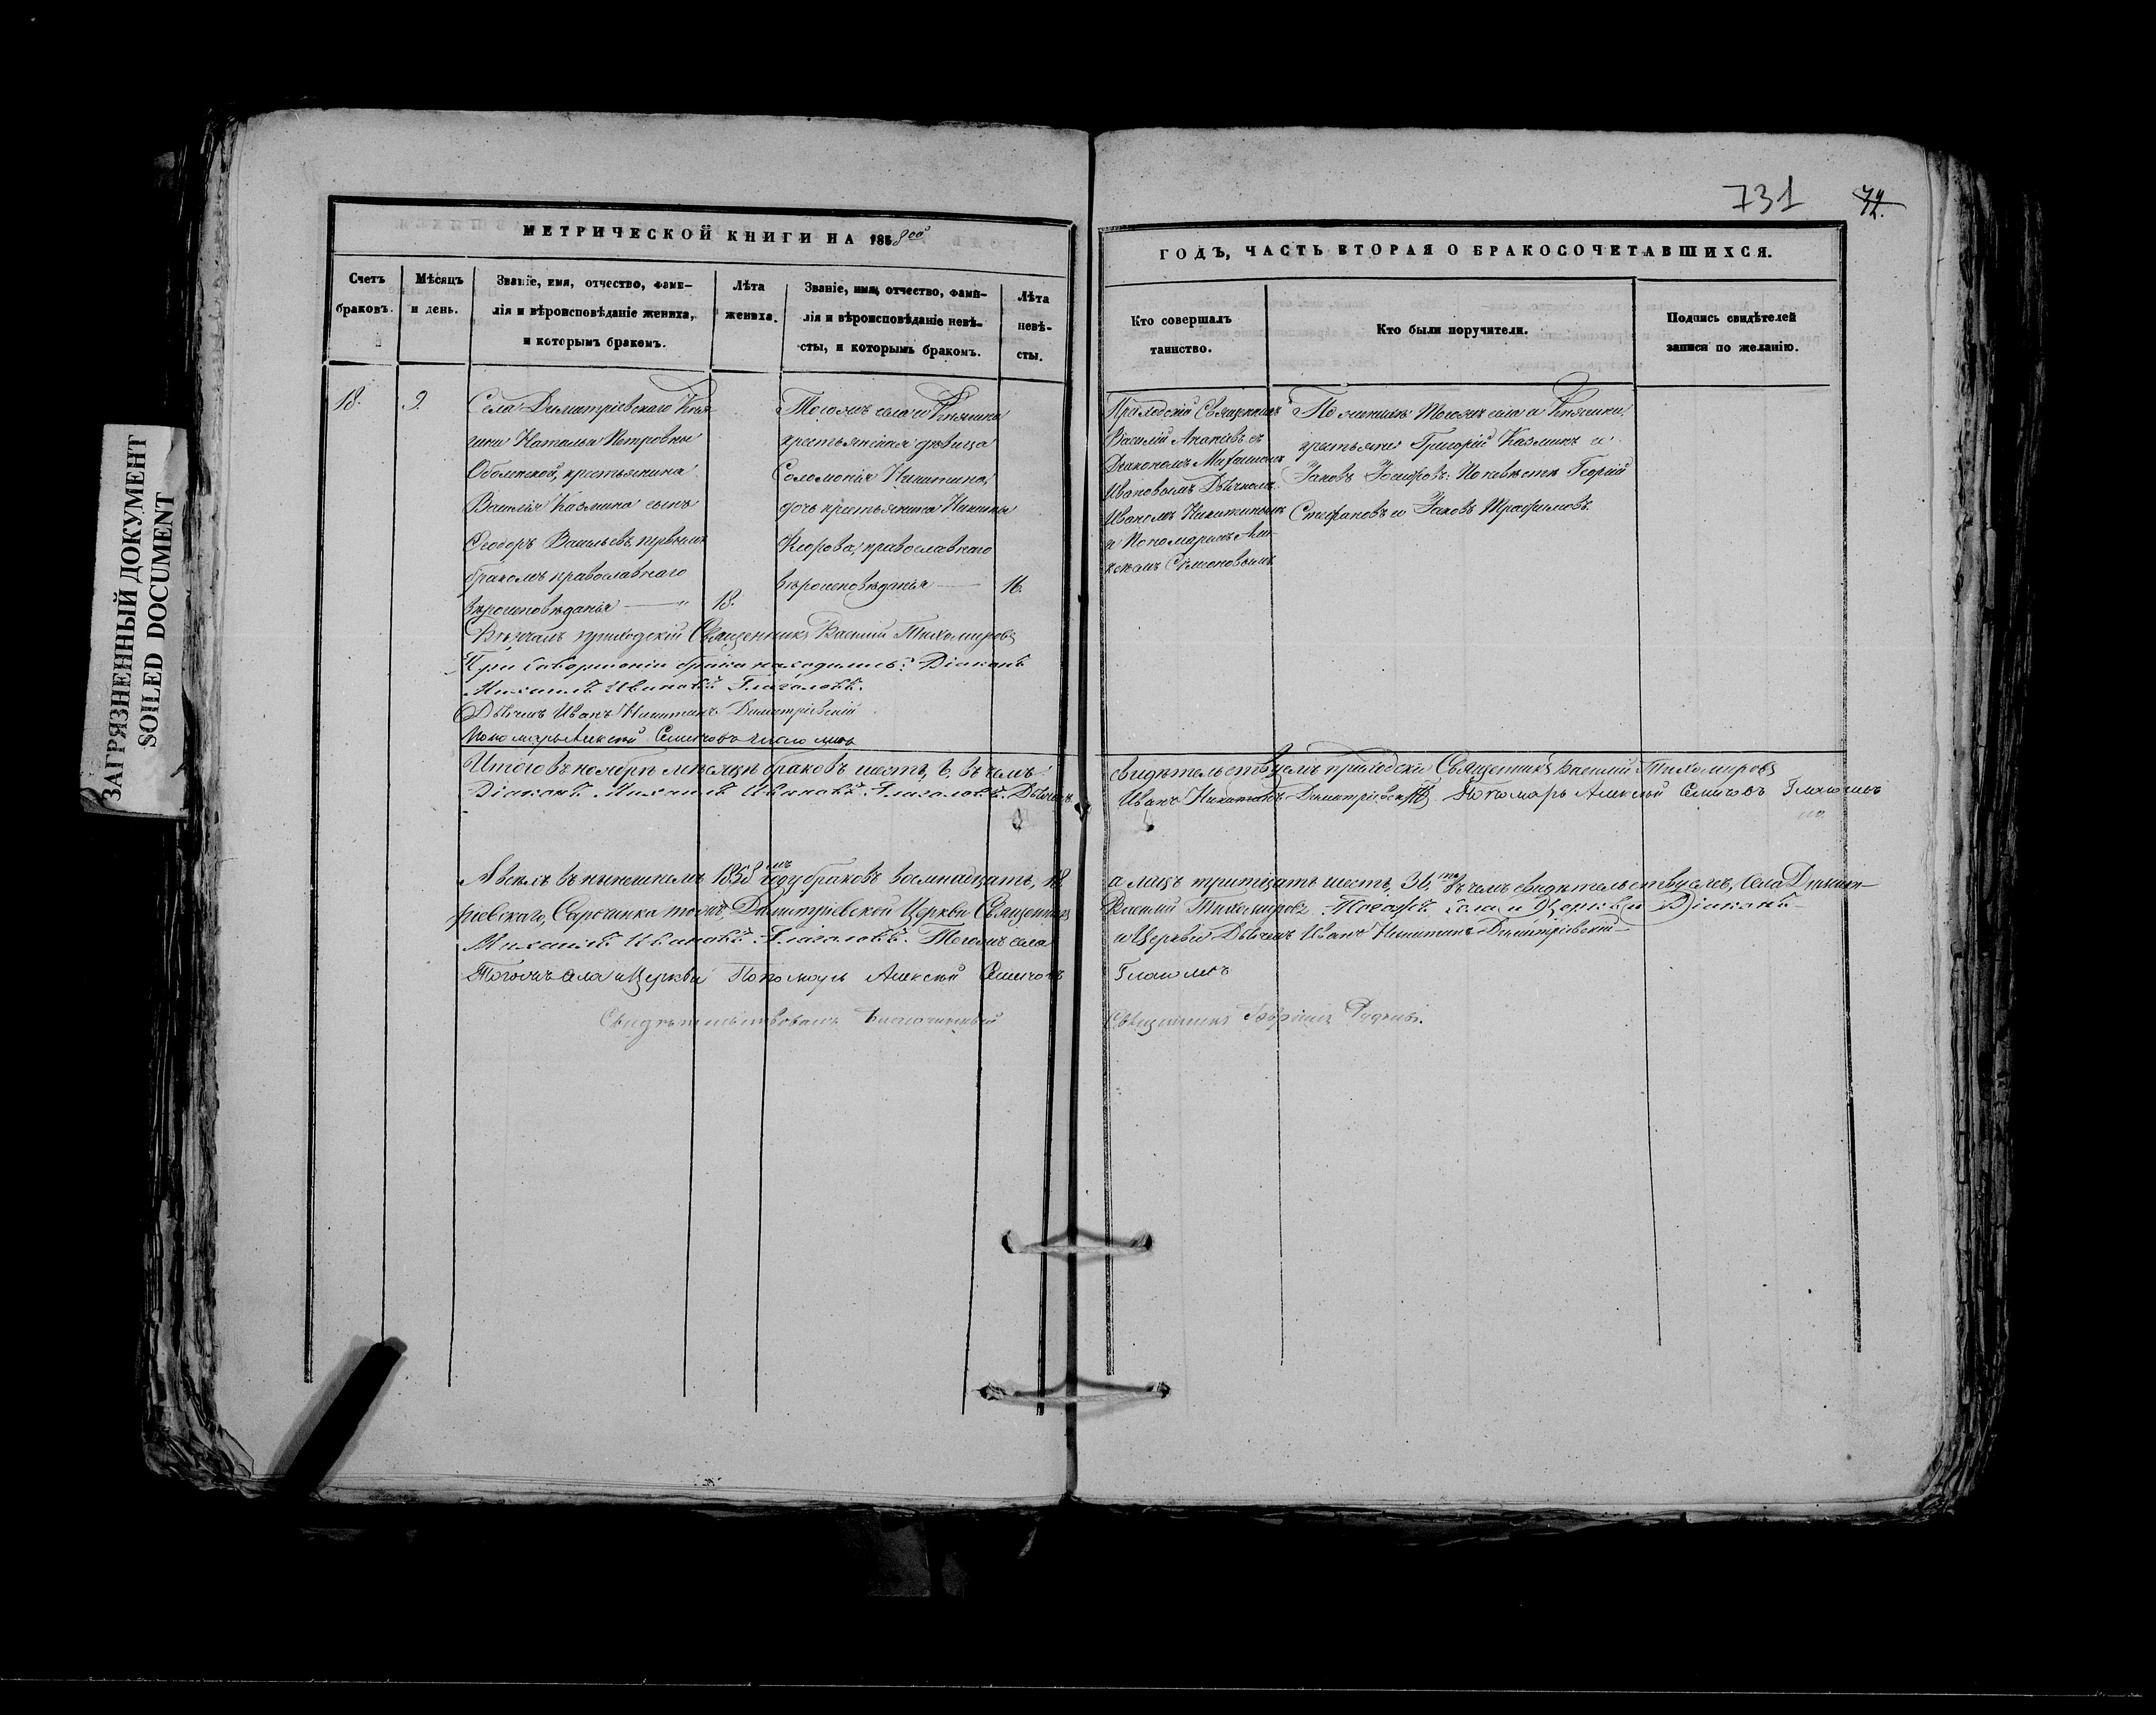 731
72.
ЗАГРЯЗНЕННЫЙ ДОКУМЕНТ
SOILED DOCUMENT
МЕТРИЧЕСКОЙ КНИГИ НА 1858
Счетъ
браковъ.
Мѣсяцъ
и день.
Званіе, имя, отчество, фами-
лія и вѣроисповѣданіе жениха,
и которымъ бракомъ.
Лѣта
жениха.
Званіе, имя, отчество, фами-
лія и вѣроисповѣданіе невѣ-
сты, и которымъ бракомъ.
Лѣта
невѣ-
сты.
18.
9.
Села Димитріевскаго Кня-
гини Натальи Петровны
Оболенской, крестьянина
Василія Казмина сынъ
Ѳеодоръ Васильевъ, первымъ
бракомъ православнаго
вѣроисповѣданія
18.
Тогожъ села и Княгини
крестьянская дѣвица
Соломонія Никитина,
дочь крестьянина Никиты
православнаго
вѣроисповѣданія
16.
Вѣнчалъ приходскій Священникъ Василій Тихомировъ
При совершеніи брака находились: Діаконъ
Михаилъ Ивановъ Глаголевъ.
Дьячекъ Иванъ Никитинъ Димитріевскій
Пономарь Алексѣй
Итого въ ноябрѣ мѣсяцѣ браковъ шесть, 6, въ чемъ
Діаконъ Михаилъ Ивановъ Глаголевъ. Дьячекъ
А всехъ въ нынешнемъ 1858мъ году браковъ восемнадцать, 18,
ріевскаго, тожъ, Димитріевской Церкви Священникъ
Михаилъ Ивановъ Глаголевъ. Тогожъ села
Тогожъ села и Церкви Пономарь Алексѣй
Свидѣтельствовалъ Благочинный
ГОДЪ, ЧАСТЬ ВТОРАЯ О БРАКОСОЧЕТАВШИХСЯ.
Кто совершалъ
таинство.
Кто были поручители.
Подпись свидѣтелей
записи по желанію.
Приходскій Священникъ
Василій съ
Діакономъ Михаиломъ
Ивановымъ Дьячкомъ
Иваномъ Никитинымъ
и Пономаремъ Але-
ксѣемъ
По женихѣ: Тогожъ села и Княгини,
крестьяне Григорій Казминъ и
Іаковъ По невѣстѣ Георгій
Стефановъ и Іаковъ Трофимовъ.
приходскій Священникъ Василій Тихомировъ
Иванъ Никитинъ Димитріевскій Пономарь Алексѣй
а лицъ тритцать шесть, 36, въ чемъ свидѣтельствуемъ, села Димит-
Василій Тихомировъ Тогожъ села и Церкви Діаконъ
и Церкви Дьячекъ Иванъ Никитинъ Димитріевскій
Священникъ